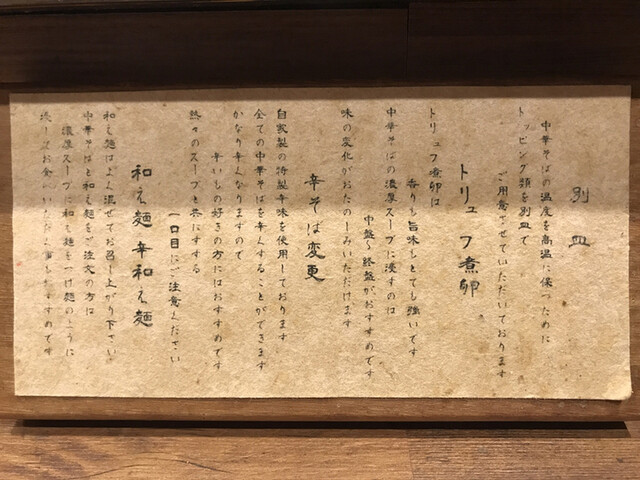 別皿
中華そばの温度を高温に保つために
トッピング類を別皿で
ご用意させていただいております
トリュフ煮卵
トリュフ煮卵は
香りも旨味もとても強いです
中華そばの濃厚スープに浸すのは
中盤〜終盤がおすすめです
味の変化がおたのしみいただけます
辛そば変更
自家製の特製辛味を使用しております
全ての中華そばを辛くすることができます
かなり辛くなりますので
辛いもの好きの方にはおすすめです
熱々のスープと共にすする
一口目にご注意ください
和え麺 辛和え麺
和え麺はよく混ぜてお召し上がり下さい
中華そばと和え麺をご注文の方は
濃厚スープに和え麺をつけ麺のように
浸してお食べいただく事もおすすめです